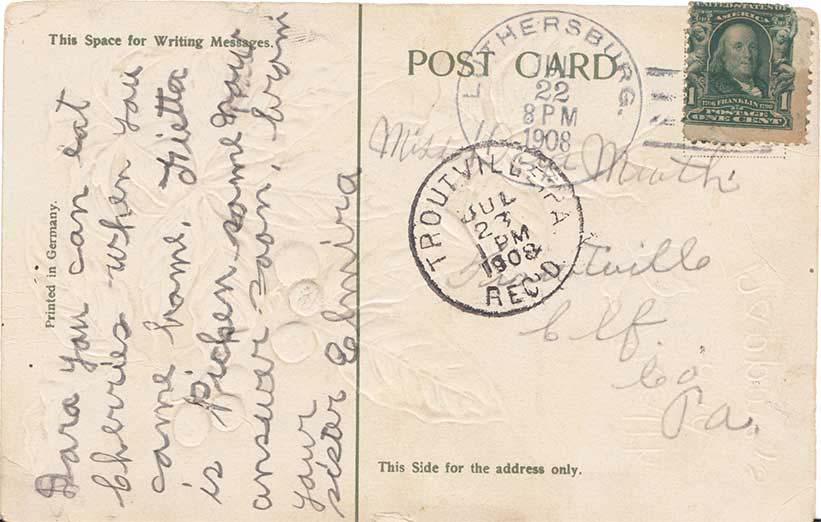 This Space for Writing Messages.
Dara you can eat
Cherries when you
came home. Fietta
is pichen some now
answer soon. from
your
sister Elmira
Printed in Germany.
POST CARD
LUTHERSBURG.
22
8 PM
1908
UNITED STATES OF
AMERICA
1 1706 FRANKLIN 1790 1
POSTAGE
ONE CENT
Miss
TROUTVILLE PA
JUL
23
1 PM
1908
REC'D
Clf.
Co
Pa.
This Side for the address only.